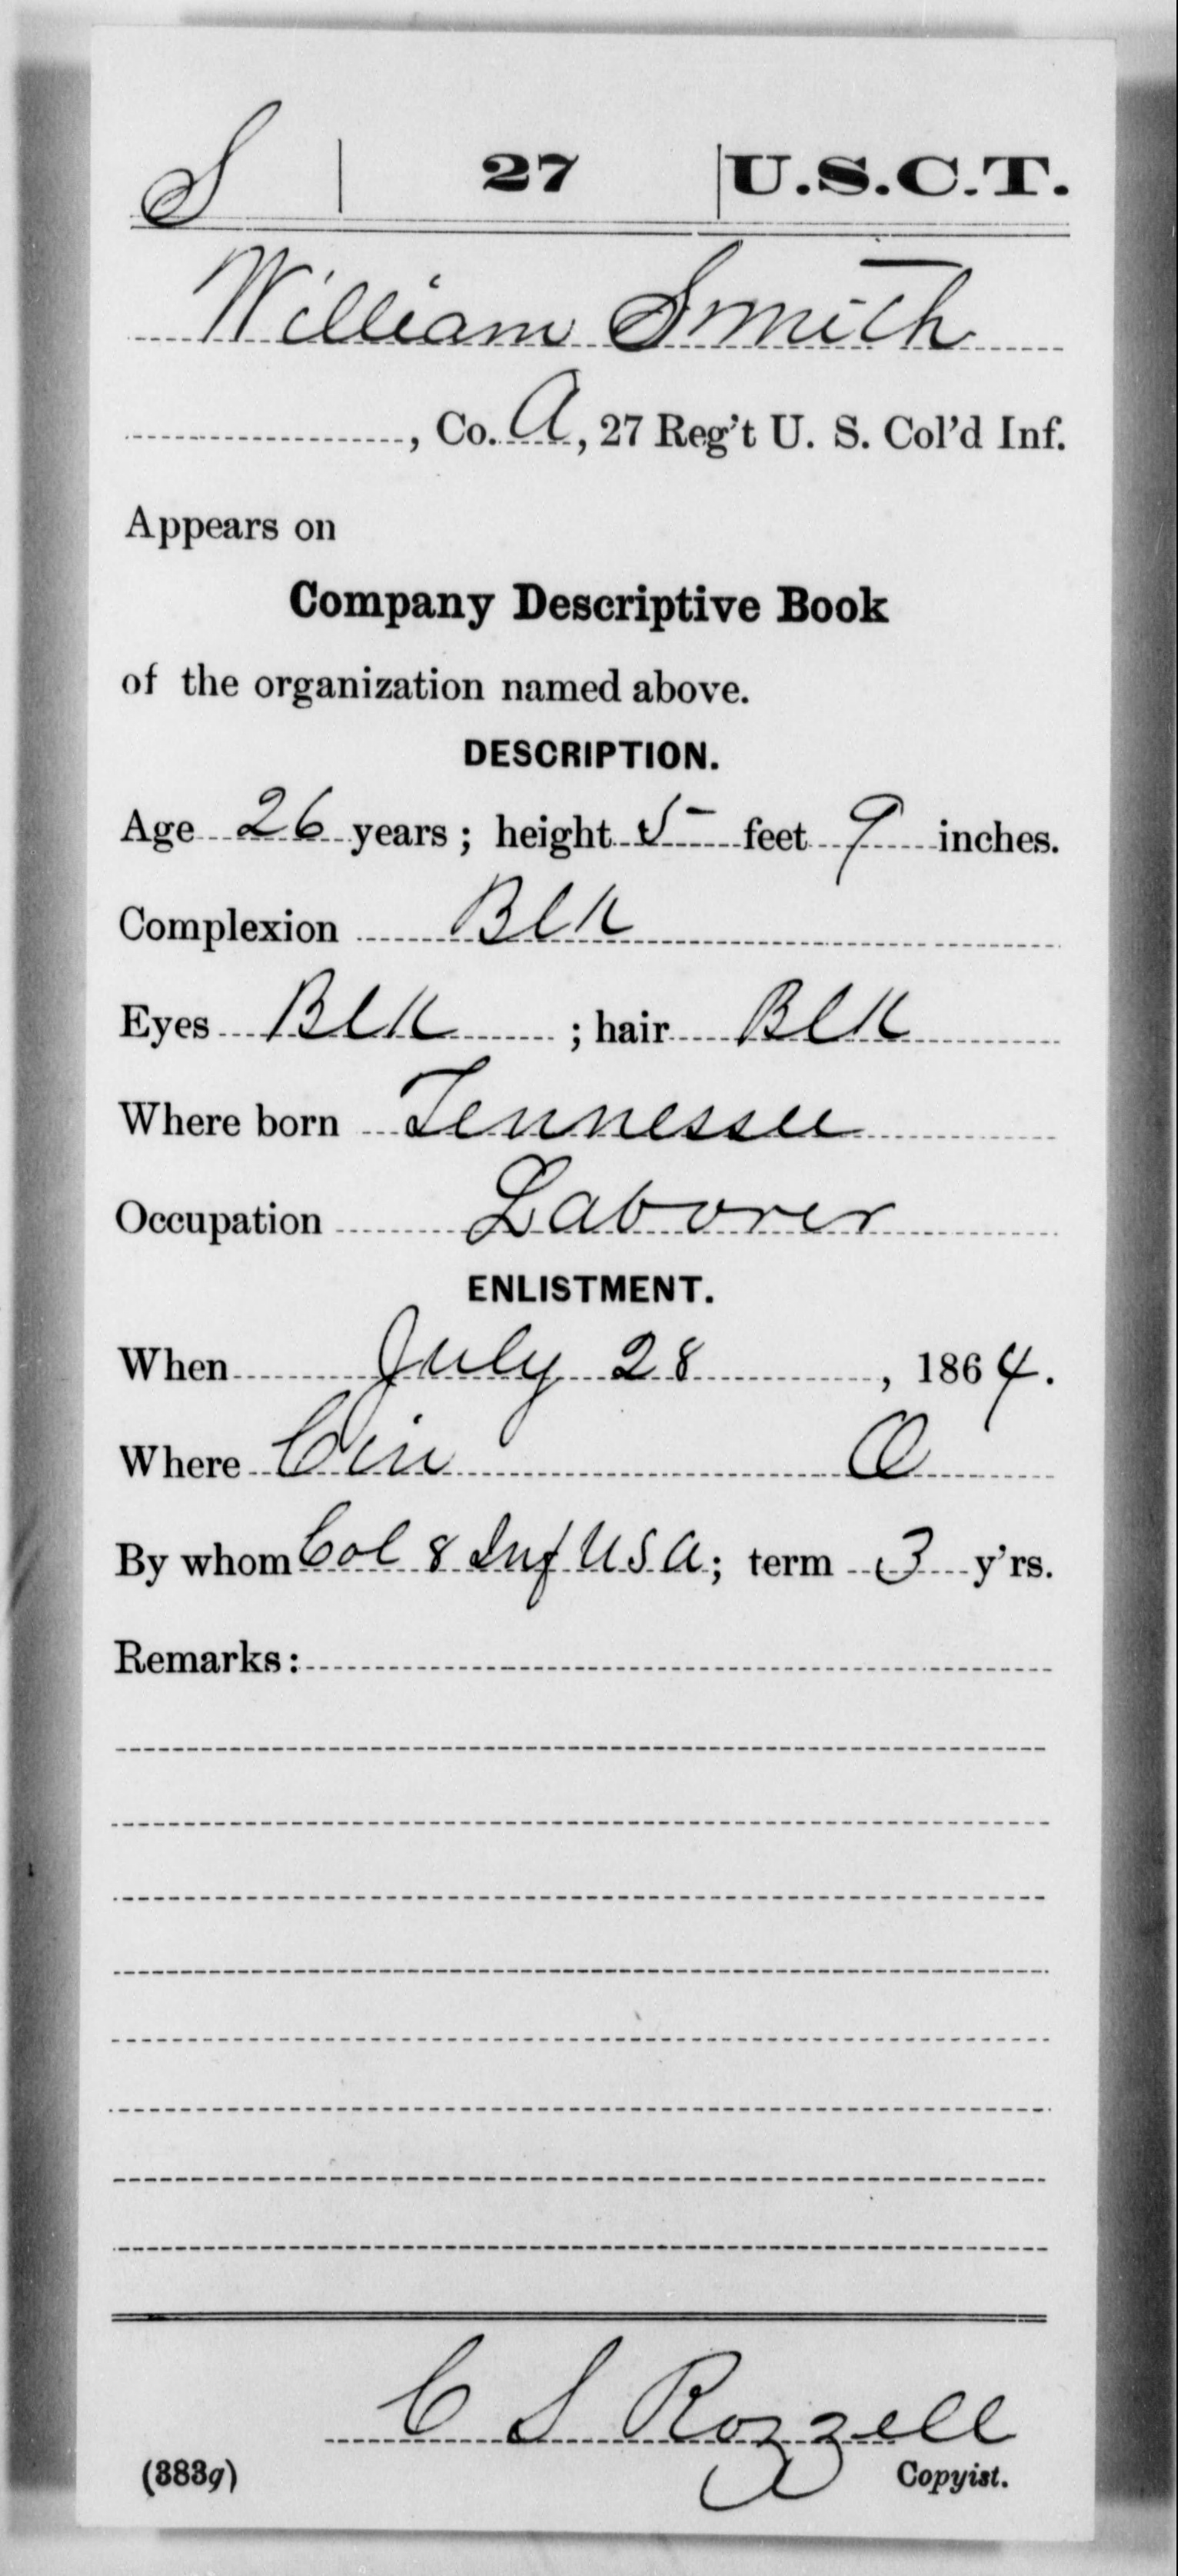 S | 27 | U.S.C.T.
William Smith
, Co. A, 27 Reg't U. S. Col'd Inf.
Appears on
Company Descriptive Book
of the organization named above.
DESCRIPTION.
Age 26 years; height 5 feet 9 inches.
Complexion Blk
Eyes Blk; hair Blk
Where born Tennessee
Occupation Laborer
ENLISTMENT.
When July 28, 1864.
Where Cin O
By whom Col 8 Inf USA; term 3 y'rs.
Remarks:
C S Rozzell
(383g) Copyist.